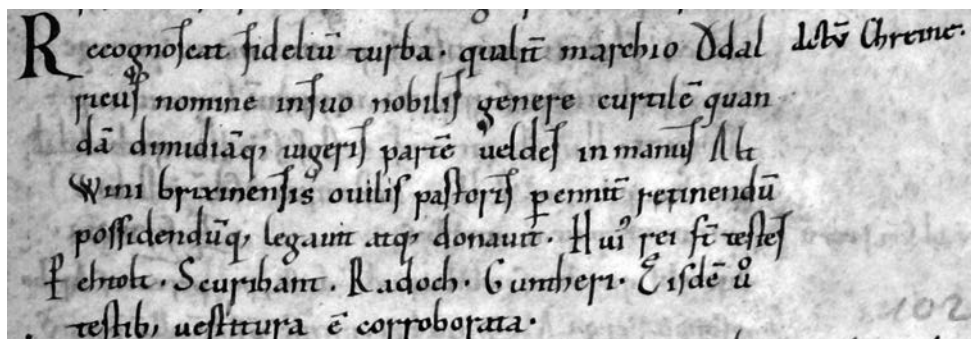 Recognoscat fideliū turba· qualit̄ marchio Ǒdal
ricus nomine in suo nobilis genere curtilē quan
dā dimidiāq; iugeris partē ueldes in manus Alt
wini brixinensis ouilis pastoris ꝑennit̄ retinendū
possidendūq; legauit atq; donauit· Huiꝰ rei st̄ testes
Scuribant· Radoch· Guntheri· Eisdē ů
testib; uestitura ē corroborata·
102